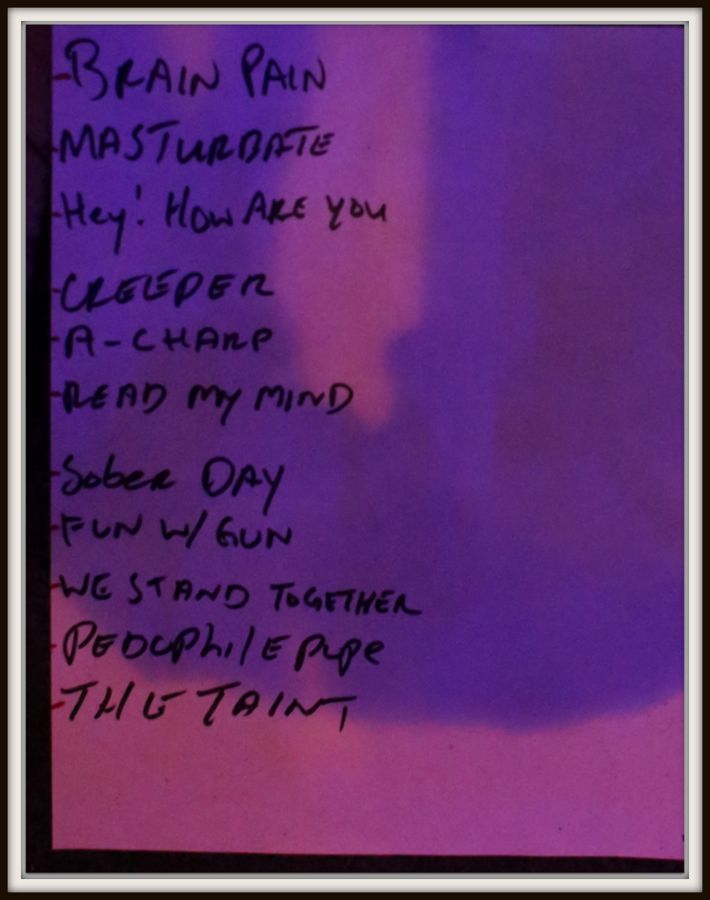 - BRAIN PAIN
- MASTURBATE
- Hey! HOW ARE YOU
- CREEPER
- A-CHARP
- READ MY MIND
- Sober DAY
- FUN W/ GUN
- WE STAND TOGETHER
- PEDOPhilE pope
- THE TAINT